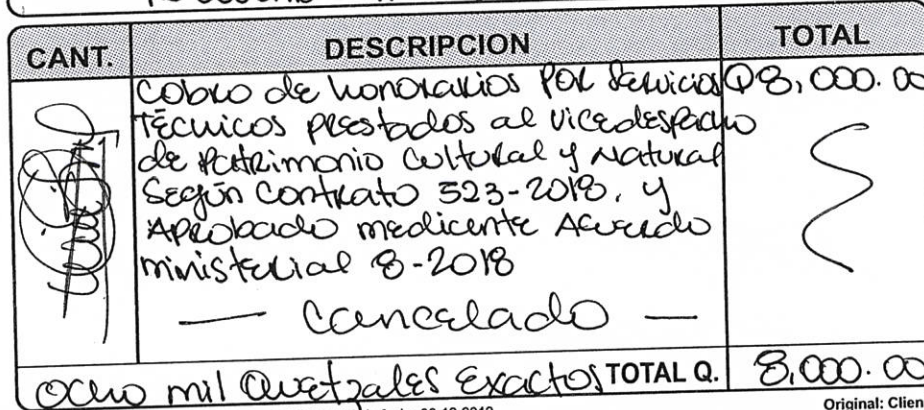 CANT. DESCRIPCION TOTAL
Cobro de honorarios por servicios Q8,000.00
Técnicos prestados al vicedespacho
de Patrimonio Cultural y Natural
Según Contrato 523-2018. y
Aprobado mediante Acuerdo
ministerial 8-2018
— Cancelado —
Ocho mil Quetzales Exactos TOTAL Q. 8,000.00
Original: Clien